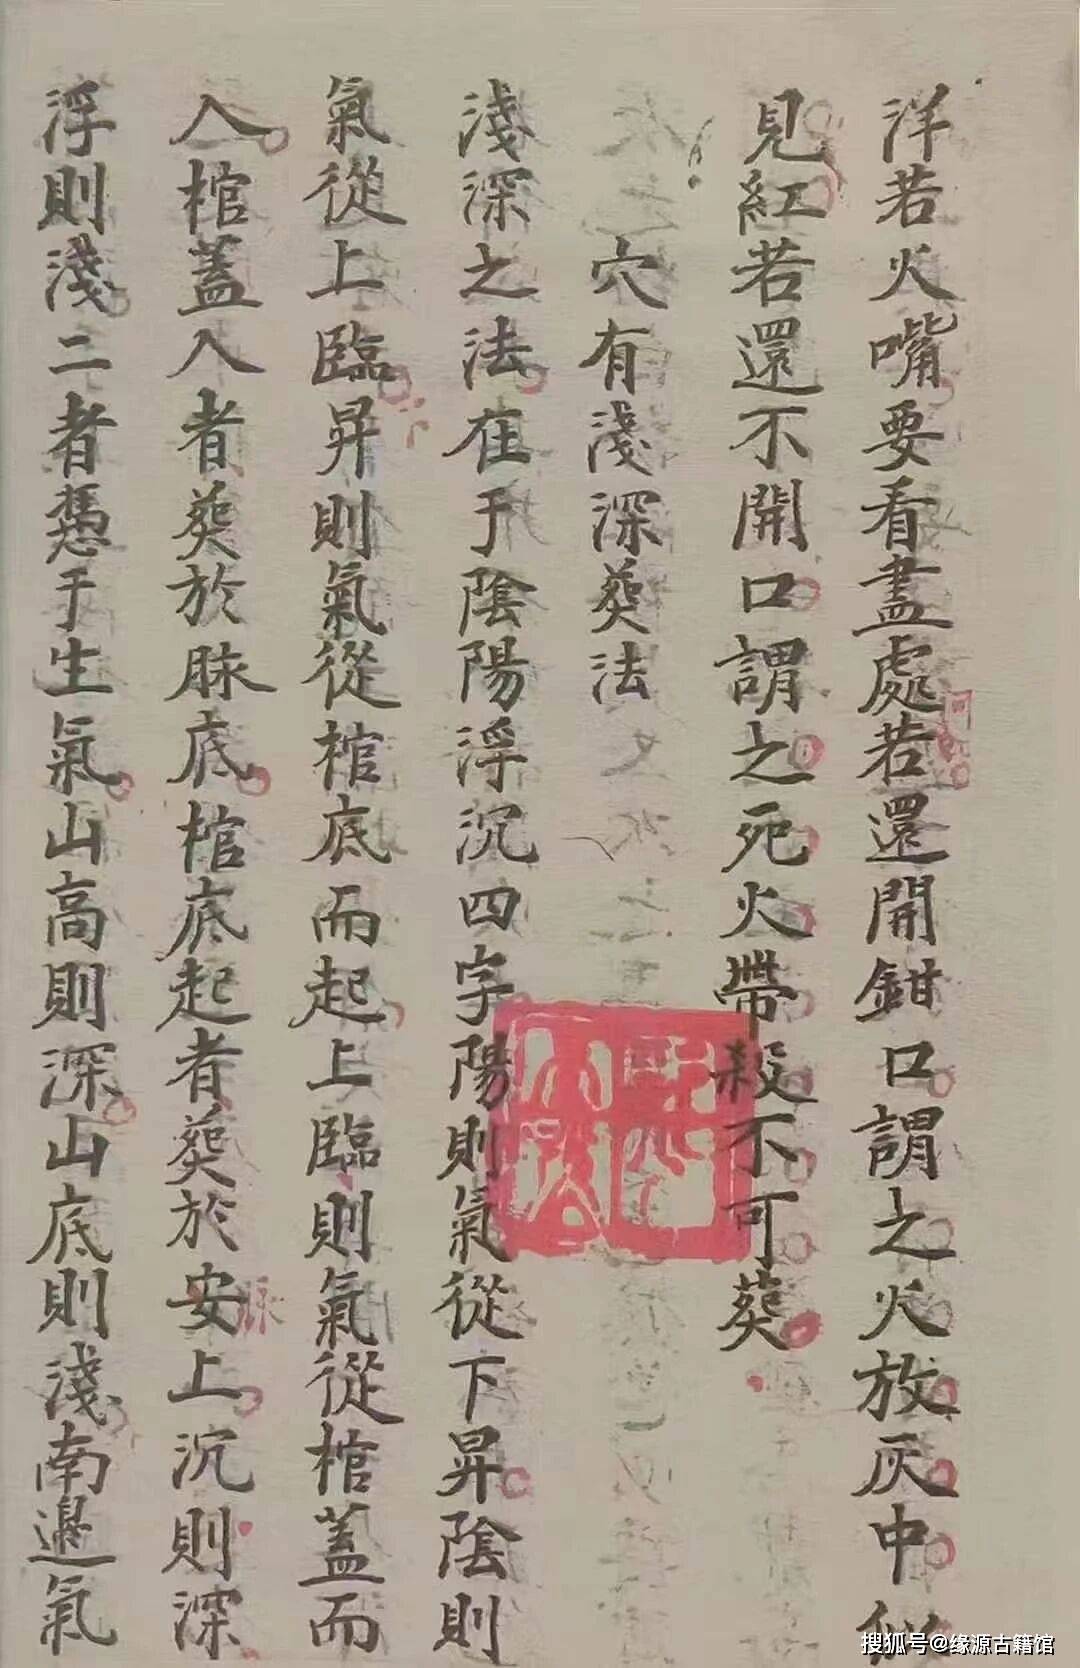 洋若火嘴要看盡處若還開鉗口謂之火放灰中似
見紅若還不開口謂之死火帶殺不可葬
穴有淺深葬法
淺深之法在于陰陽浮沉四字陽則氣從下昇陰則
氣從上臨昇則氣從棺底而起上臨則氣從棺蓋而
入棺蓋入者葬於脉底棺底起者葬於安上沉則深
脉
浮則淺二者憑于生氣山高則深山底則淺南邊氣
搜狐号@缘源古籍馆